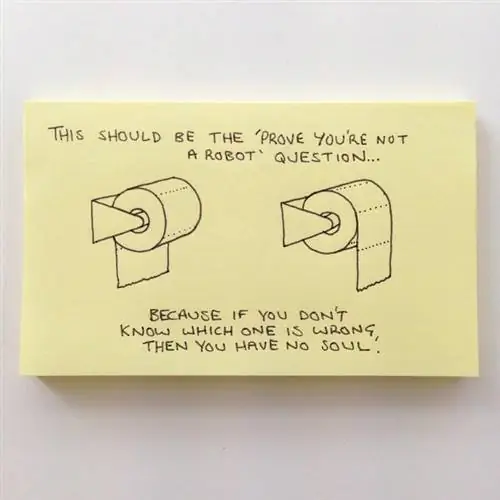 THIS SHOULD BE THE 'PROVE YOU'RE NOT
A ROBOT' QUESTION...
BECAUSE IF YOU DON'T
KNOW WHICH ONE IS WRONG,
THEN YOU HAVE NO SOUL.